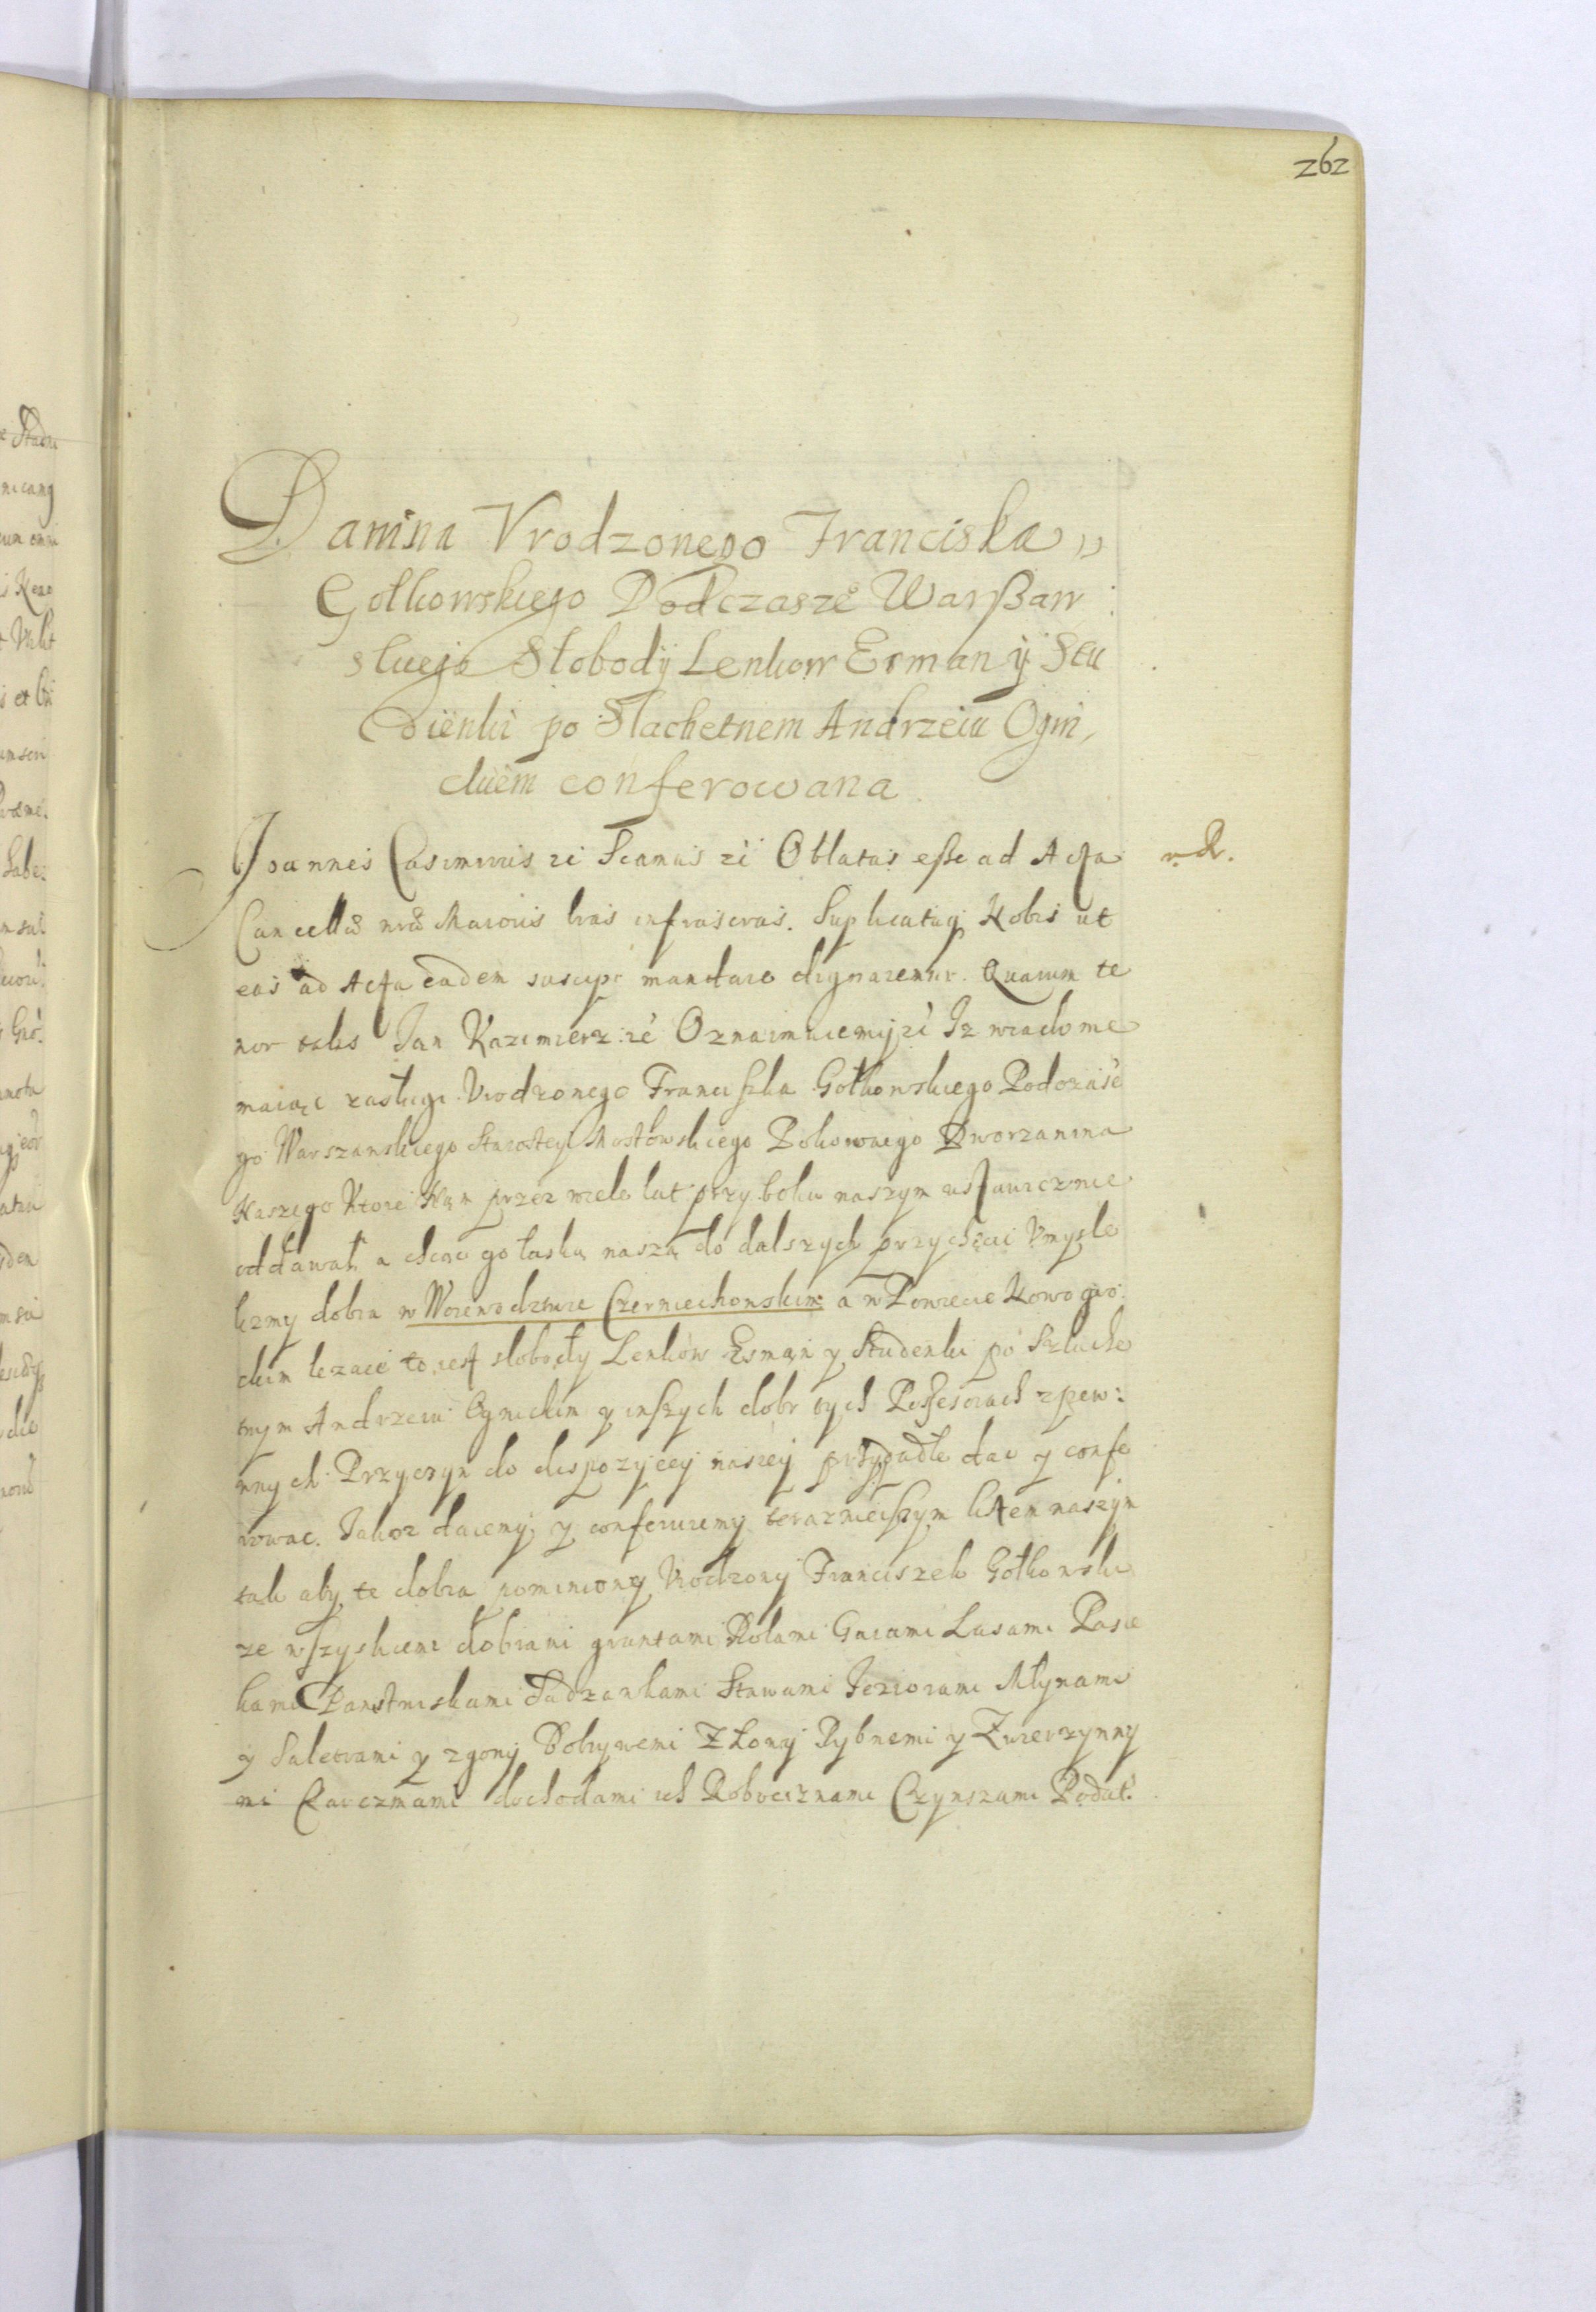 262
Danina Vrodzonego Franciska
Gołkowskiego Podczasze Warßaw
skiego Słobody Lenkow Esman ÿ Stu
dienki po Slachetnem Andrzeiu Ogni,
ckiem conferowana
Joannes Casimirus zc Sciamus zc Oblatas eße ad Acta
r. R.
Cancellæ nræ Maioris lras infrascras. Suplicatuq Nobis ut
eas ad Acta eadem suscipi mandare dignaremur. Quarum te
nor talis Jan Kazimierz zc Oznaimuiemy zc Iz wiadome
maiąc zasługi Vrodzonego Franciszka Gołkowskiego Podczasze
go Warszawskiego Starosty Mostowskiego Pokoiowego Dworzanina
Naszego Ktore Nam przez wiele lat przy boku naszym ustawicznie
oddawał a chcąc go łaską naszą do dalszych przychęcic Vmysle
lizmy dobra w Woiewodztwie Czerniechowskim a w Powiecie Nowogro:
ckim lezace to iest słobody Lenkow Esmań y Studenki po Szlache
tnym Andrzeiu Ognickim y inszych dobr tych Possesorach z pew:
nnych Przyczyn do dispozycey naszey przypadłe dac y confe
rowac. Jakoz daiemy y conferuiemy teraznieiszym listem naszym
tak aby te dobra pomieniony Vrodzony Franciszek Gołkowski
ze wszyskiemi dobrami gruntami Rolami Gaiami Lasami Pasie
kami Pastwiskami Sadzawkami Stawami Jeziorami Młynami
y Saletrami y zgony Bobrowemi Złowy Rybnemi y Zwierzynny
mi Karczmami dochodami ich Robociznami Czynszami Podat: